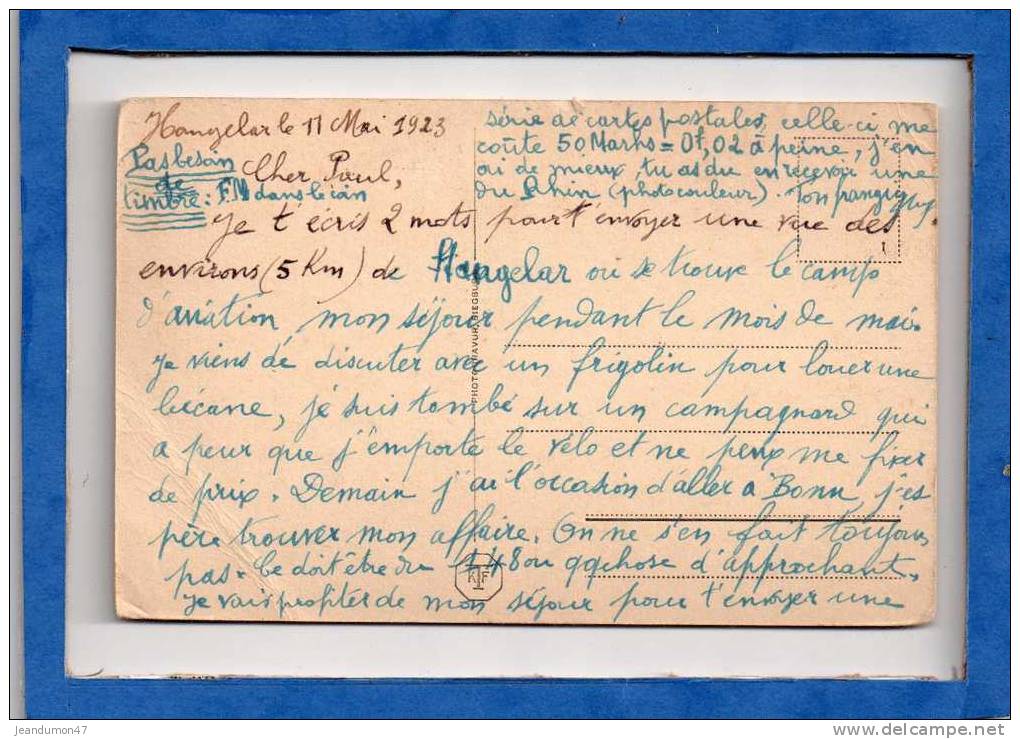 Hangelar le 11 Mai 1923
Pas besoin
de
timbre : FM dans le coin
Cher Paul,
Je t'écris 2 mots pour t'envoyer une vue des
environs (5 Km) de Hangelar où se trouve le camp
d'aviation, mon séjour pendant le mois de mai.
Je viens de discuter avec un frigolin pour louer une
bécane, je suis tombé sur un campagnard qui
a peur que j'emporte le vélo et ne peux me fixer
de prix. Demain j'ai l'occasion d'aller à Bonn, j'es
père trouver mon affaire. On ne s'en fait toujours
pas. Ce doit être du 148 ou qqchose d'approchant.
Je vais profiter de mon séjour pour t'envoyer une
série de cartes postales, celle-ci me
coûte 50 Marks = 0f,02 à peine, j'en
ai de mieux, tu as du en recevoir une
du Rhin (photo couleur). Ton frangin
KTF
jeandumon47
http://www.delcampe.net